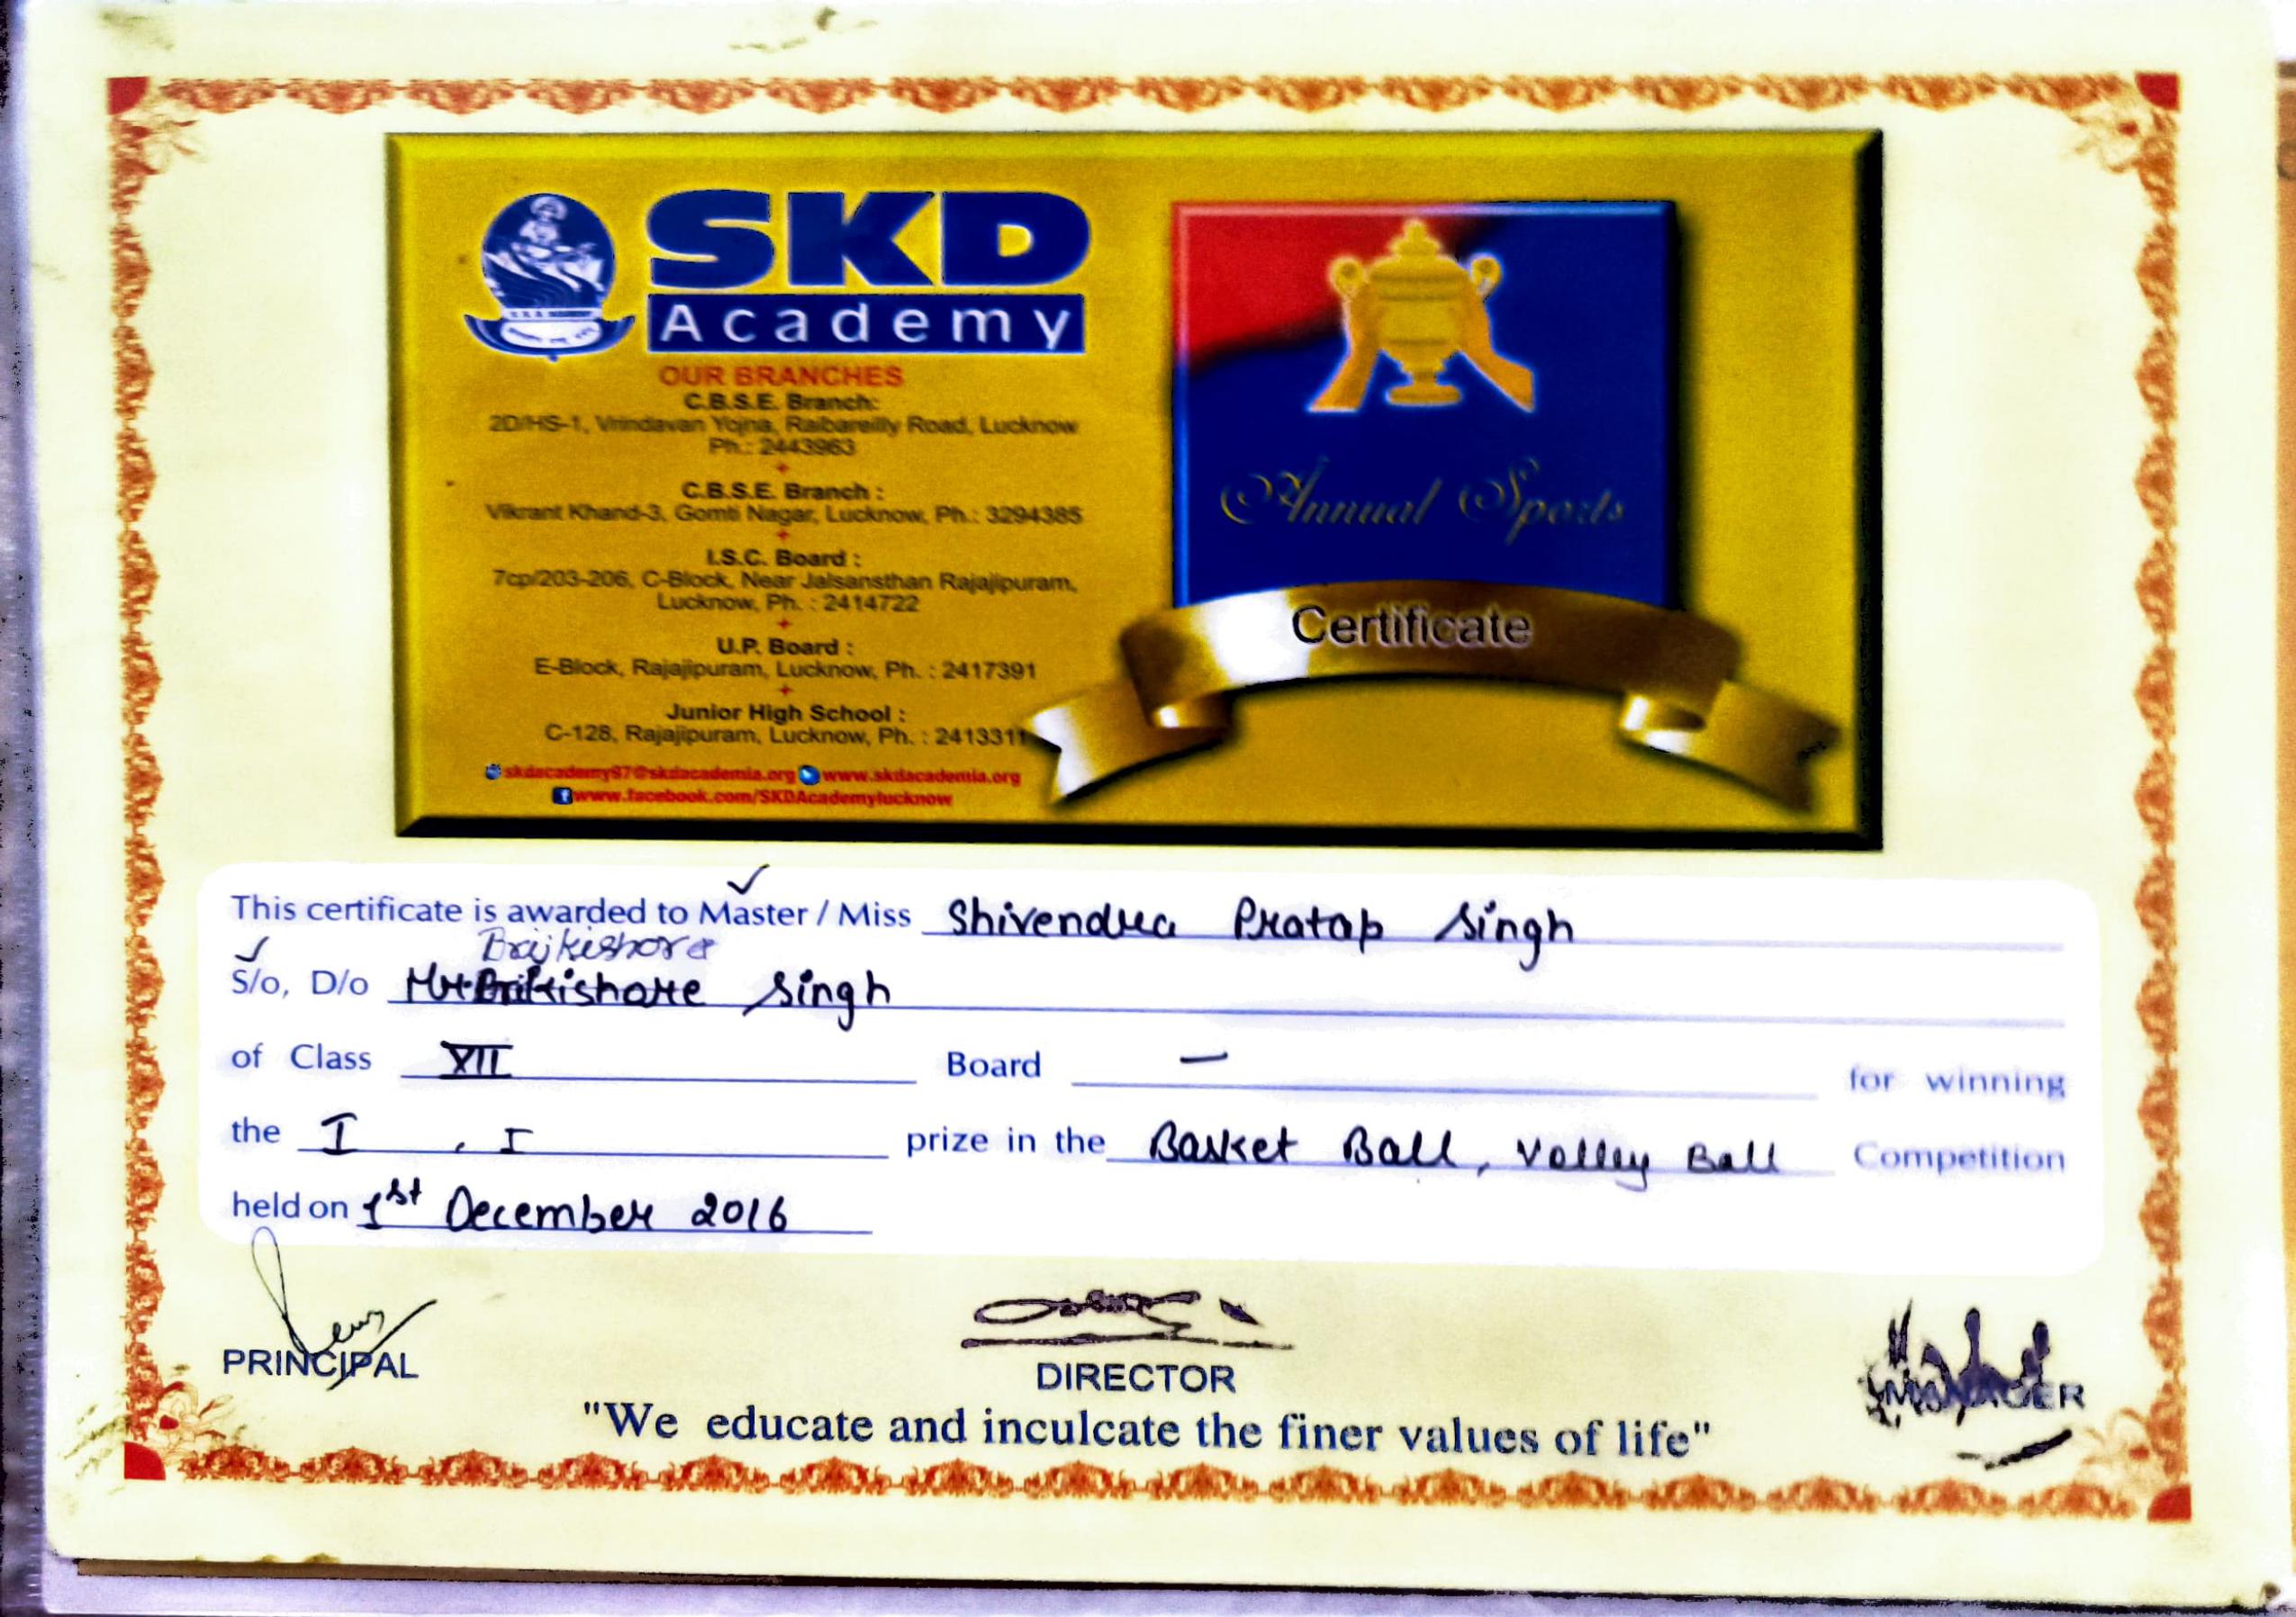 SKD
Academy
OUR BRANCHES
C.B.S.E. Branch:
2D/HS-1, Vrindavan Yojna, Raibareilly Road, Lucknow
Ph.: 2443963
C.B.S.E. Branch :
Vikrant Khand-3, Gomti Nagar, Lucknow, Ph.: 3294385
I.S.C. Board :
7cp/203-206, C-Block, Near Jalsansthan Rajajipuram,
Lucknow, Ph. : 2414722
U.P. Board :
E-Block, Rajajipuram, Lucknow, Ph. : 2417391
Junior High School :
C-128, Rajajipuram, Lucknow, Ph. : 2413311
skdacademy97@skdacademia.org www.skdacademia.org
www.facebook.com/SKDAcademylucknow
Annual Sports
Certificate
This certificate is awarded to Master / Miss Shivendra Pratap Singh
Brijkishore
S/o, D/o Mr. Brikishore Singh
of Class XII Board — for winning
the I , I prize in the Basket Ball, Volley Ball Competition
held on 1st December 2016
PRINCIPAL
DIRECTOR
MANAGER
"We educate and inculcate the finer values of life"